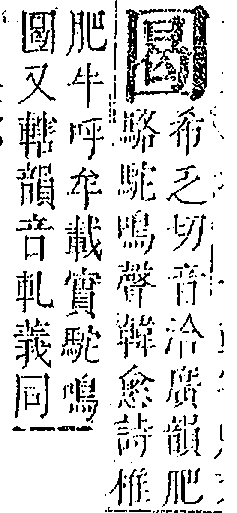 圔
希乏切音洽廣韻肥
駱駝鳴聲韓愈詩椎
肥牛呼牟載實駝鳴
圔又轄韻音軋義同